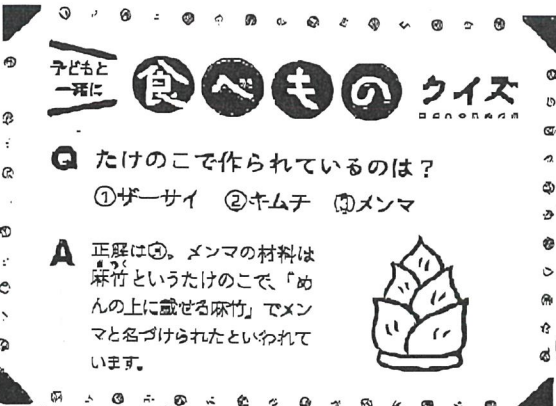 子どもと
一緒に
食べもの クイズ
Q たけのこで作られているのは？
①ザーサイ ②キムチ ③メンマ
A 正解は③。メンマの材料は
麻竹というたけのこで、「め
んの上に載せる麻竹」でメン
マと名づけられたといわれて
います。